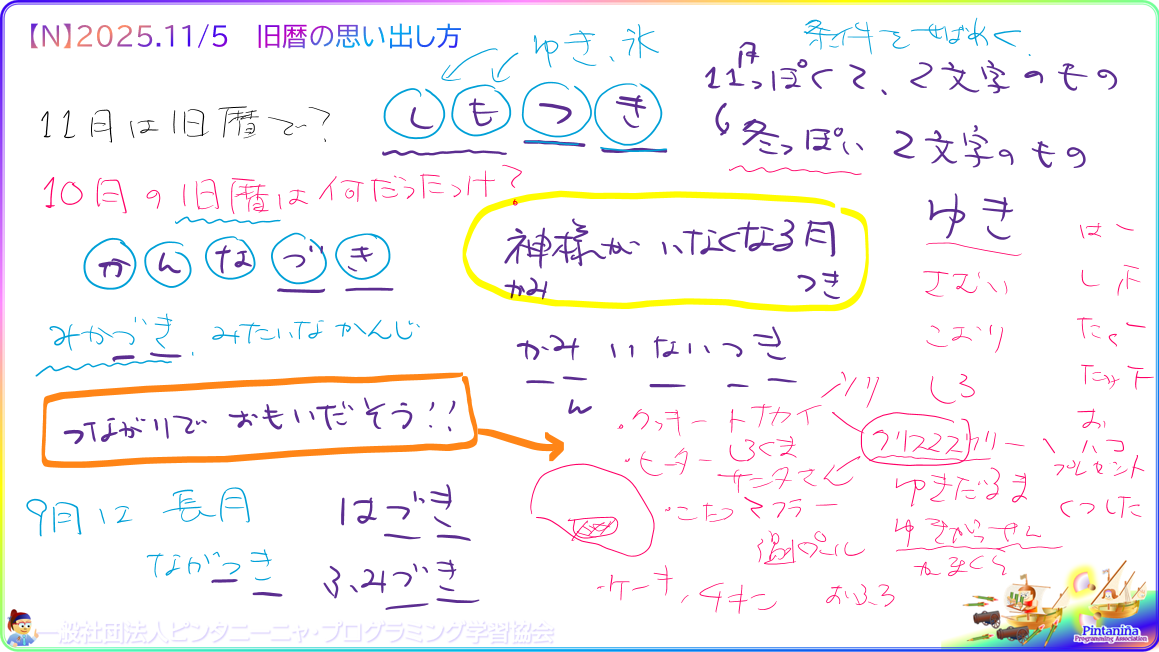 【N】2025.11/5 旧暦の思い出し方
ゆき、氷
条件をせばめく
11月っぽくて、2文字のもの
冬っぽい 2文字のもの
11月は旧暦で?
しもつき
10月の旧暦は何だったっけ?
かんなづき
神様がいなくなる月
かみ つき
みかづき、みたいなかんじ
かみ いないつき
ん
つながりで おもいだそう!!
9月は 長月
ながつき
はづき
ふみづき
ゆき
さむい
こおり
しろ
ソリ
・クッキー トナカイ
クリスマスツリー
・ヒーター しろくま
サンタさん
・こたつ マフラー
ゆきだるま
ゆきがっせん
かまくら
温水プール
・ケーキ、チキン おふろ
ハコ
プレゼント
くつした
一般社団法人ピンタニーニャ・プログラミング学習協会
Pintaniña
Programming Association